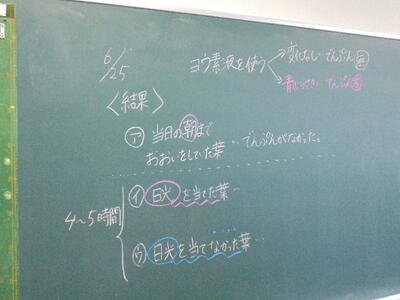 6/25
ヨウ素液を使う
変化なし…でんぷん無
青むらさき…でんぷん有
〈結果〉
㋐ 当日の朝まで
おおいをしていた葉…でんぷんがなかった。
4~5時間
㋑ 日光を当てた葉…
㋒ 日光を当てなかった葉…